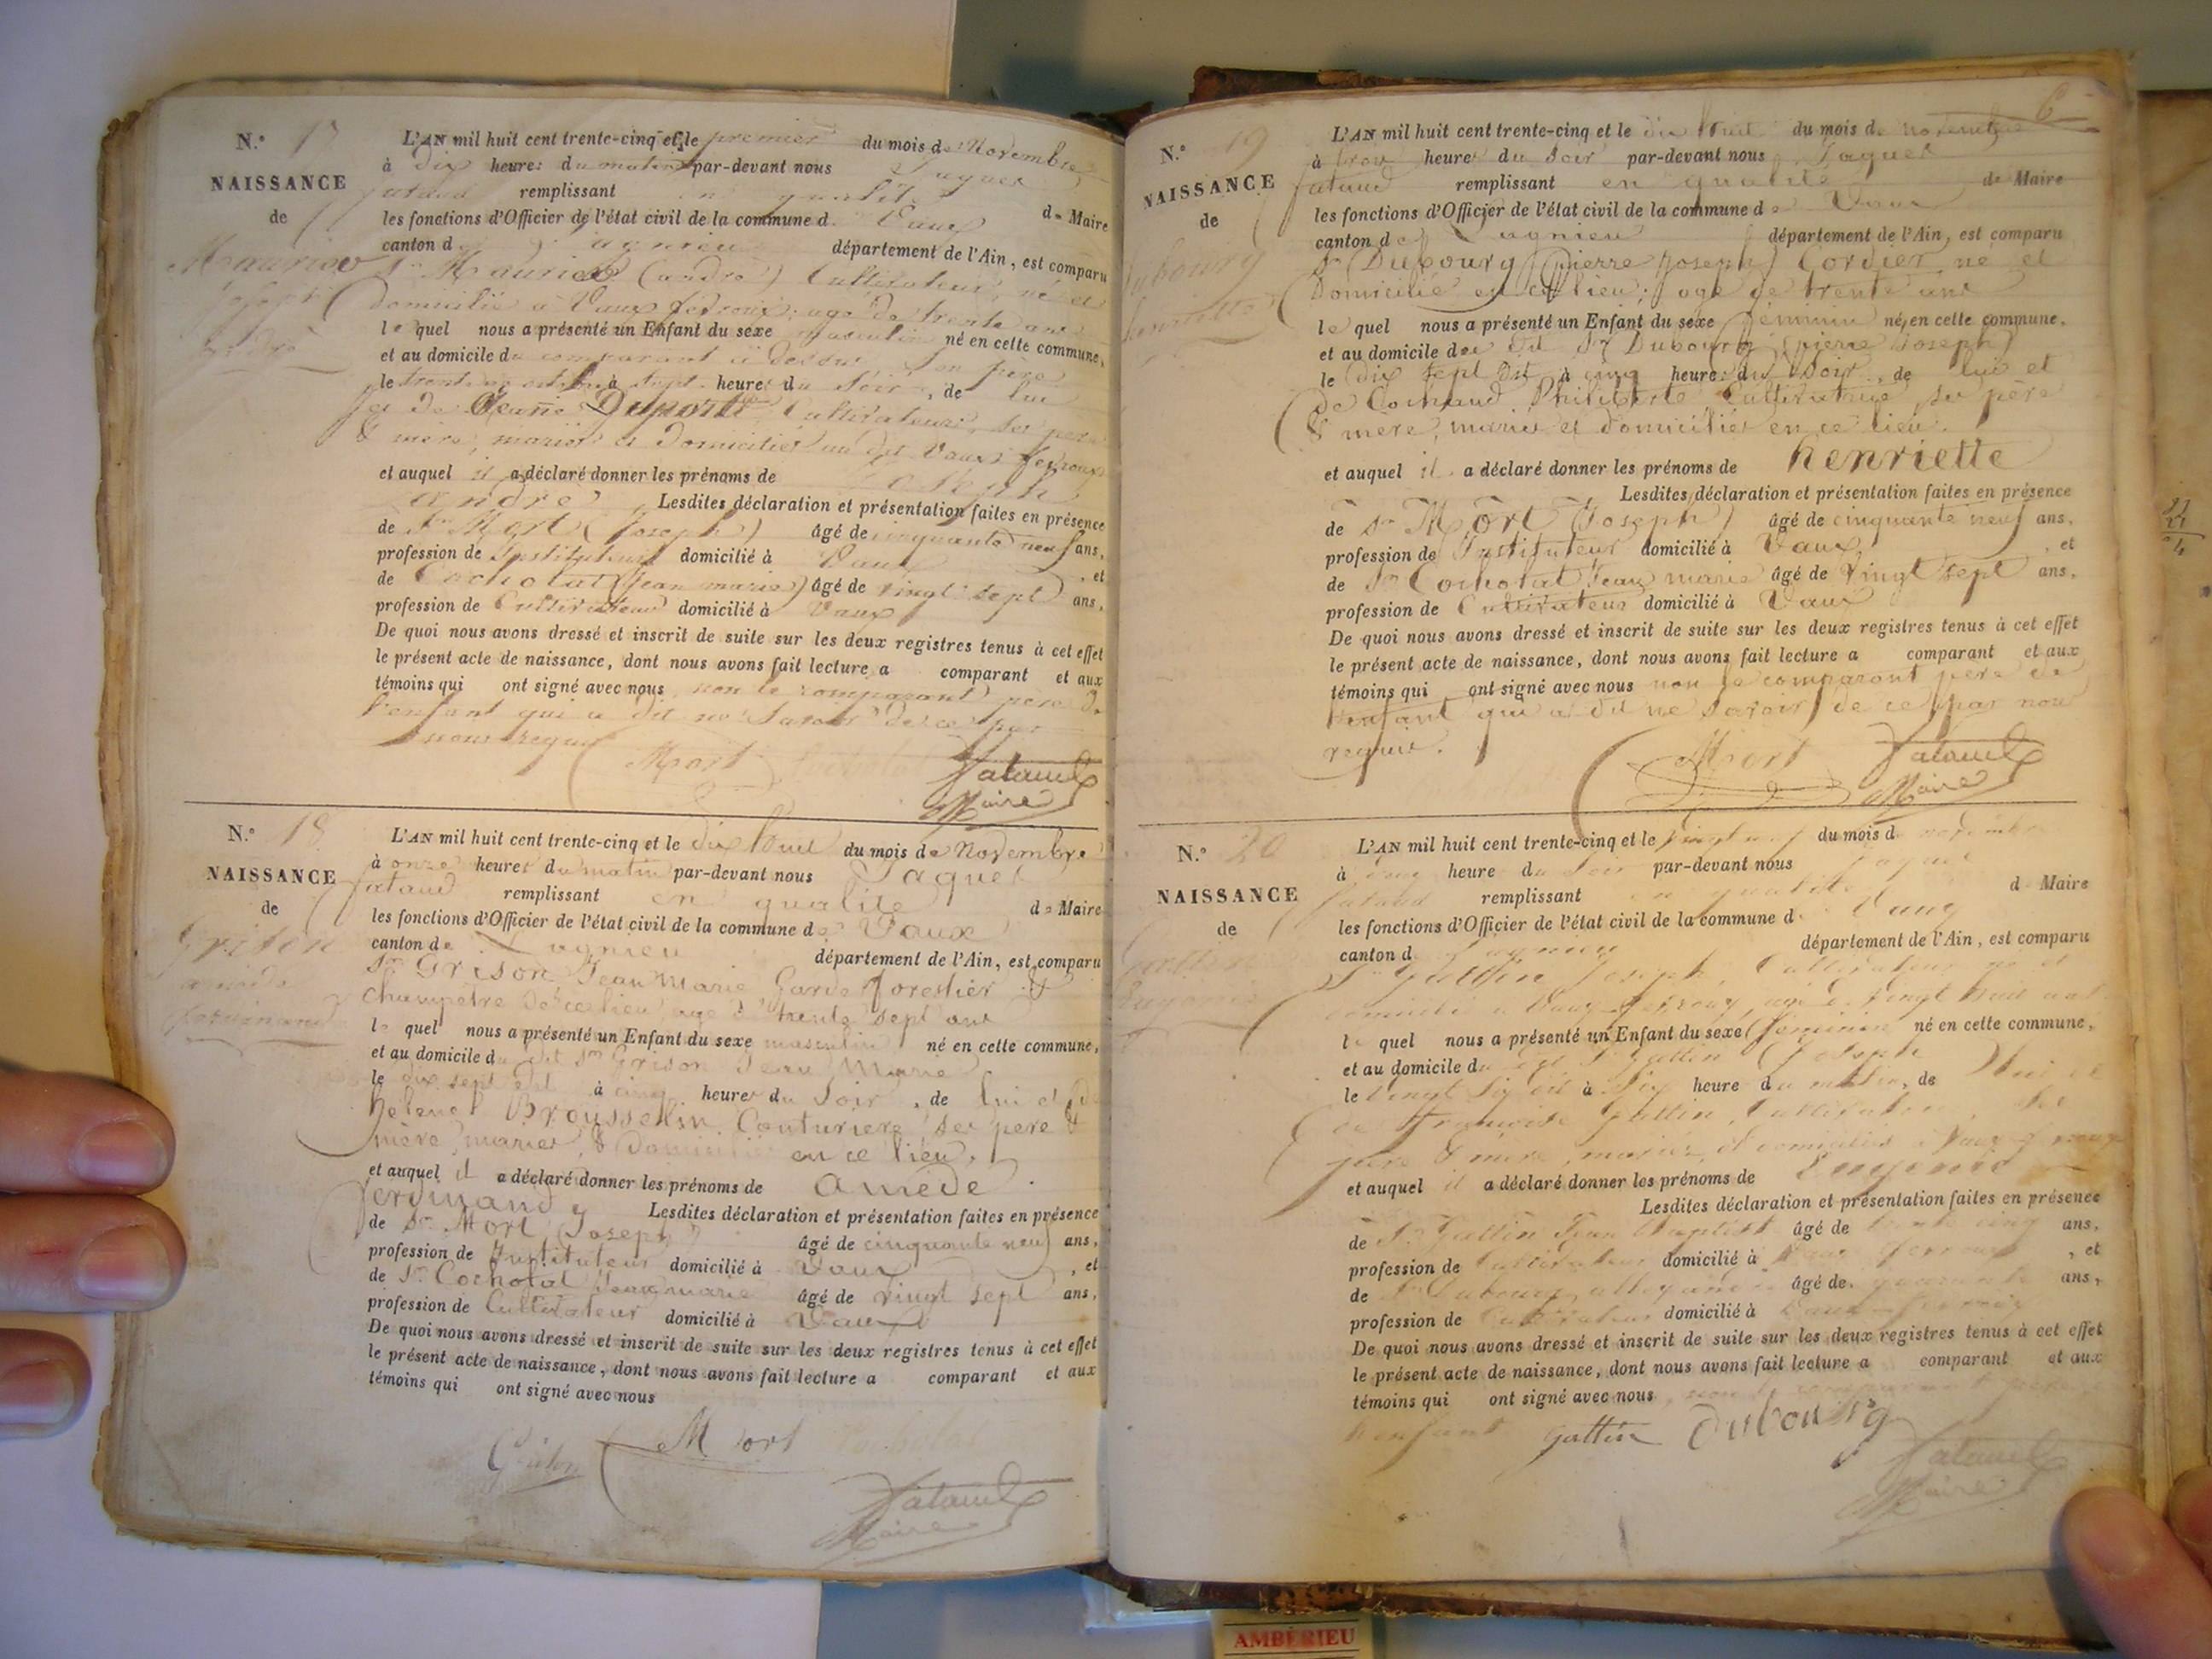 N.° 17
NAISSANCE
de
Maurice
Joseph
andré
L'AN mil huit cent trente-cinq et le premier du mois de Novembre
à dix heures du matin par-devant nous Jaques
fataud remplissant en qualité de Maire
les fonctions d'Officier de l'état civil de la commune de Vaux
canton de Lagnieu département de l'Ain, est comparu
Sr Maurice (andré) Cultivateur, né et
domicilié à Vaux fevroux, age de trente ans
le quel nous a présenté un Enfant du sexe masculin né en cette commune,
et au domicile du comparant ci dessus son père
le trente un octobre à sept heures du Soir, de lui
et de Jeanne Duport Cultivateurs, ses père
& mère, mariés et domiciliés au dit Vaux fevroux
et auquel il a déclaré donner les prénoms de Joseph
andré Lesdites déclaration et présentation faites en présence
de Sr Mort (Joseph) âgé de cinquante neuf ans,
profession de Instituteur domicilié à Vaux, et
de Cochotat (Jean marie) âgé de vingt sept ans,
profession de Cultivateur domicilié à Vaux
De quoi nous avons dressé et inscrit de suite sur les deux registres tenus à cet effet
le présent acte de naissance, dont nous avons fait lecture a comparant et aux
témoins qui ont signé avec nous non le comparant père de
l'enfant qui a dit ne Savoir de ce par
nous requis
Mort Cochotat fataud
Maire
N.° 18
NAISSANCE
de
Grison
amède
ferdinand
L'AN mil huit cent trente-cinq et le dix huit du mois de Novembre
à onze heures du matin par-devant nous Jaques
fataud remplissant en qualité de Maire
les fonctions d'Officier de l'état civil de la commune de Vaux
canton de Lagnieu département de l'Ain, est comparu
Sr Grison Jean Marie Garde forestier &
champêtre de ce lieu, age de trente sept ans
le quel nous a présenté un Enfant du sexe masculin né en cette commune,
et au domicile du dit Sr Grison Jean Marie
le dix sept dit à cinq heures du Soir, de lui et de
helene Brousselin Couturiere ses père &
mère, mariés & domiciliés en ce lieu,
et auquel il a déclaré donner les prénoms de amède
ferdinand Lesdites déclaration et présentation faites en présence
de Sr Mort (Joseph) âgé de cinquante neuf ans,
profession de Instituteur domicilié à Vaux, et
de Sr Cochotat Jean marie âgé de vingt sept ans,
profession de Cultivateur domicilié à Vaux
De quoi nous avons dressé et inscrit de suite sur les deux registres tenus à cet effet
le présent acte de naissance, dont nous avons fait lecture a comparant et aux
témoins qui ont signé avec nous
Grison Mort
fataud
Maire
6
N.° 19
NAISSANCE
de
Dubourg
henriette
L'AN mil huit cent trente-cinq et le dix huit du mois de novembre
à trois heures du Soir par-devant nous Jaques
fataud remplissant en qualité de Maire
les fonctions d'Officier de l'état civil de la commune de Vaux
canton de Lagnieu département de l'Ain, est comparu
Sr Dubourg (pierre Joseph) Cordier né et
Domicilié en ce lieu, age de trente ans
le quel nous a présenté un Enfant du sexe feminin né en cette commune,
et au domicile du dit Sr Dubourg (pierre Joseph)
le dix sept dit à cinq heures du Soir, de lui et
de Cochaud Philiberte Cultivatrice, ses père
& mère, mariés et domiciliés en ce lieu.
et auquel il a déclaré donner les prénoms de henriette
Lesdites déclaration et présentation faites en présence
de Sr Mort (Joseph) âgé de cinquante neuf ans,
profession de Instituteur domicilié à Vaux, et
de Sr Cochotat Jean marie âgé de vingt sept ans,
profession de Cultivateur domicilié à Vaux
De quoi nous avons dressé et inscrit de suite sur les deux registres tenus à cet effet
le présent acte de naissance, dont nous avons fait lecture a comparant et aux
témoins qui ont signé avec nous non le comparant père de
l'enfant qui a dit ne Savoir de ce par nous
requis.
Mort fataud
Maire
N.° 20
NAISSANCE
de
Gullin
L'AN mil huit cent trente-cinq et le vingt du mois de novembre
à heure du Soir par-devant nous Jaques
fataud remplissant en qualité de Maire
les fonctions d'Officier de l'état civil de la commune de Vaux
canton de Lagnieu département de l'Ain, est comparu
Sr Gullin Joseph, Cultivateur né et
domicilié à Vaux fevroux, agé de vingt huit ans
le quel nous a présenté un Enfant du sexe feminin né en cette commune,
et au domicile du dit Sr Gullin Joseph
le vingt six dit à six heure du matin, de lui et
de françoise Gullin, Cultivateurs, ses
père & mère, mariés, et domiciliés à Vaux fevroux
et auquel il a déclaré donner les prénoms de
Lesdites déclaration et présentation faites en présence
de Sr Gullin Jean Baptiste âgé de trente cinq ans,
profession de Cultivateur domicilié à Vaux fevroux, et
de Sr Dubourg âgé de quarante ans,
profession de Cultivateur domicilié à Vaux fevroux
De quoi nous avons dressé et inscrit de suite sur les deux registres tenus à cet effet
le présent acte de naissance, dont nous avons fait lecture a comparant et aux
témoins qui ont signé avec nous, non le comparant
l'enfant gullin Dubourg
fataud
Maire
AMBÉRIEU